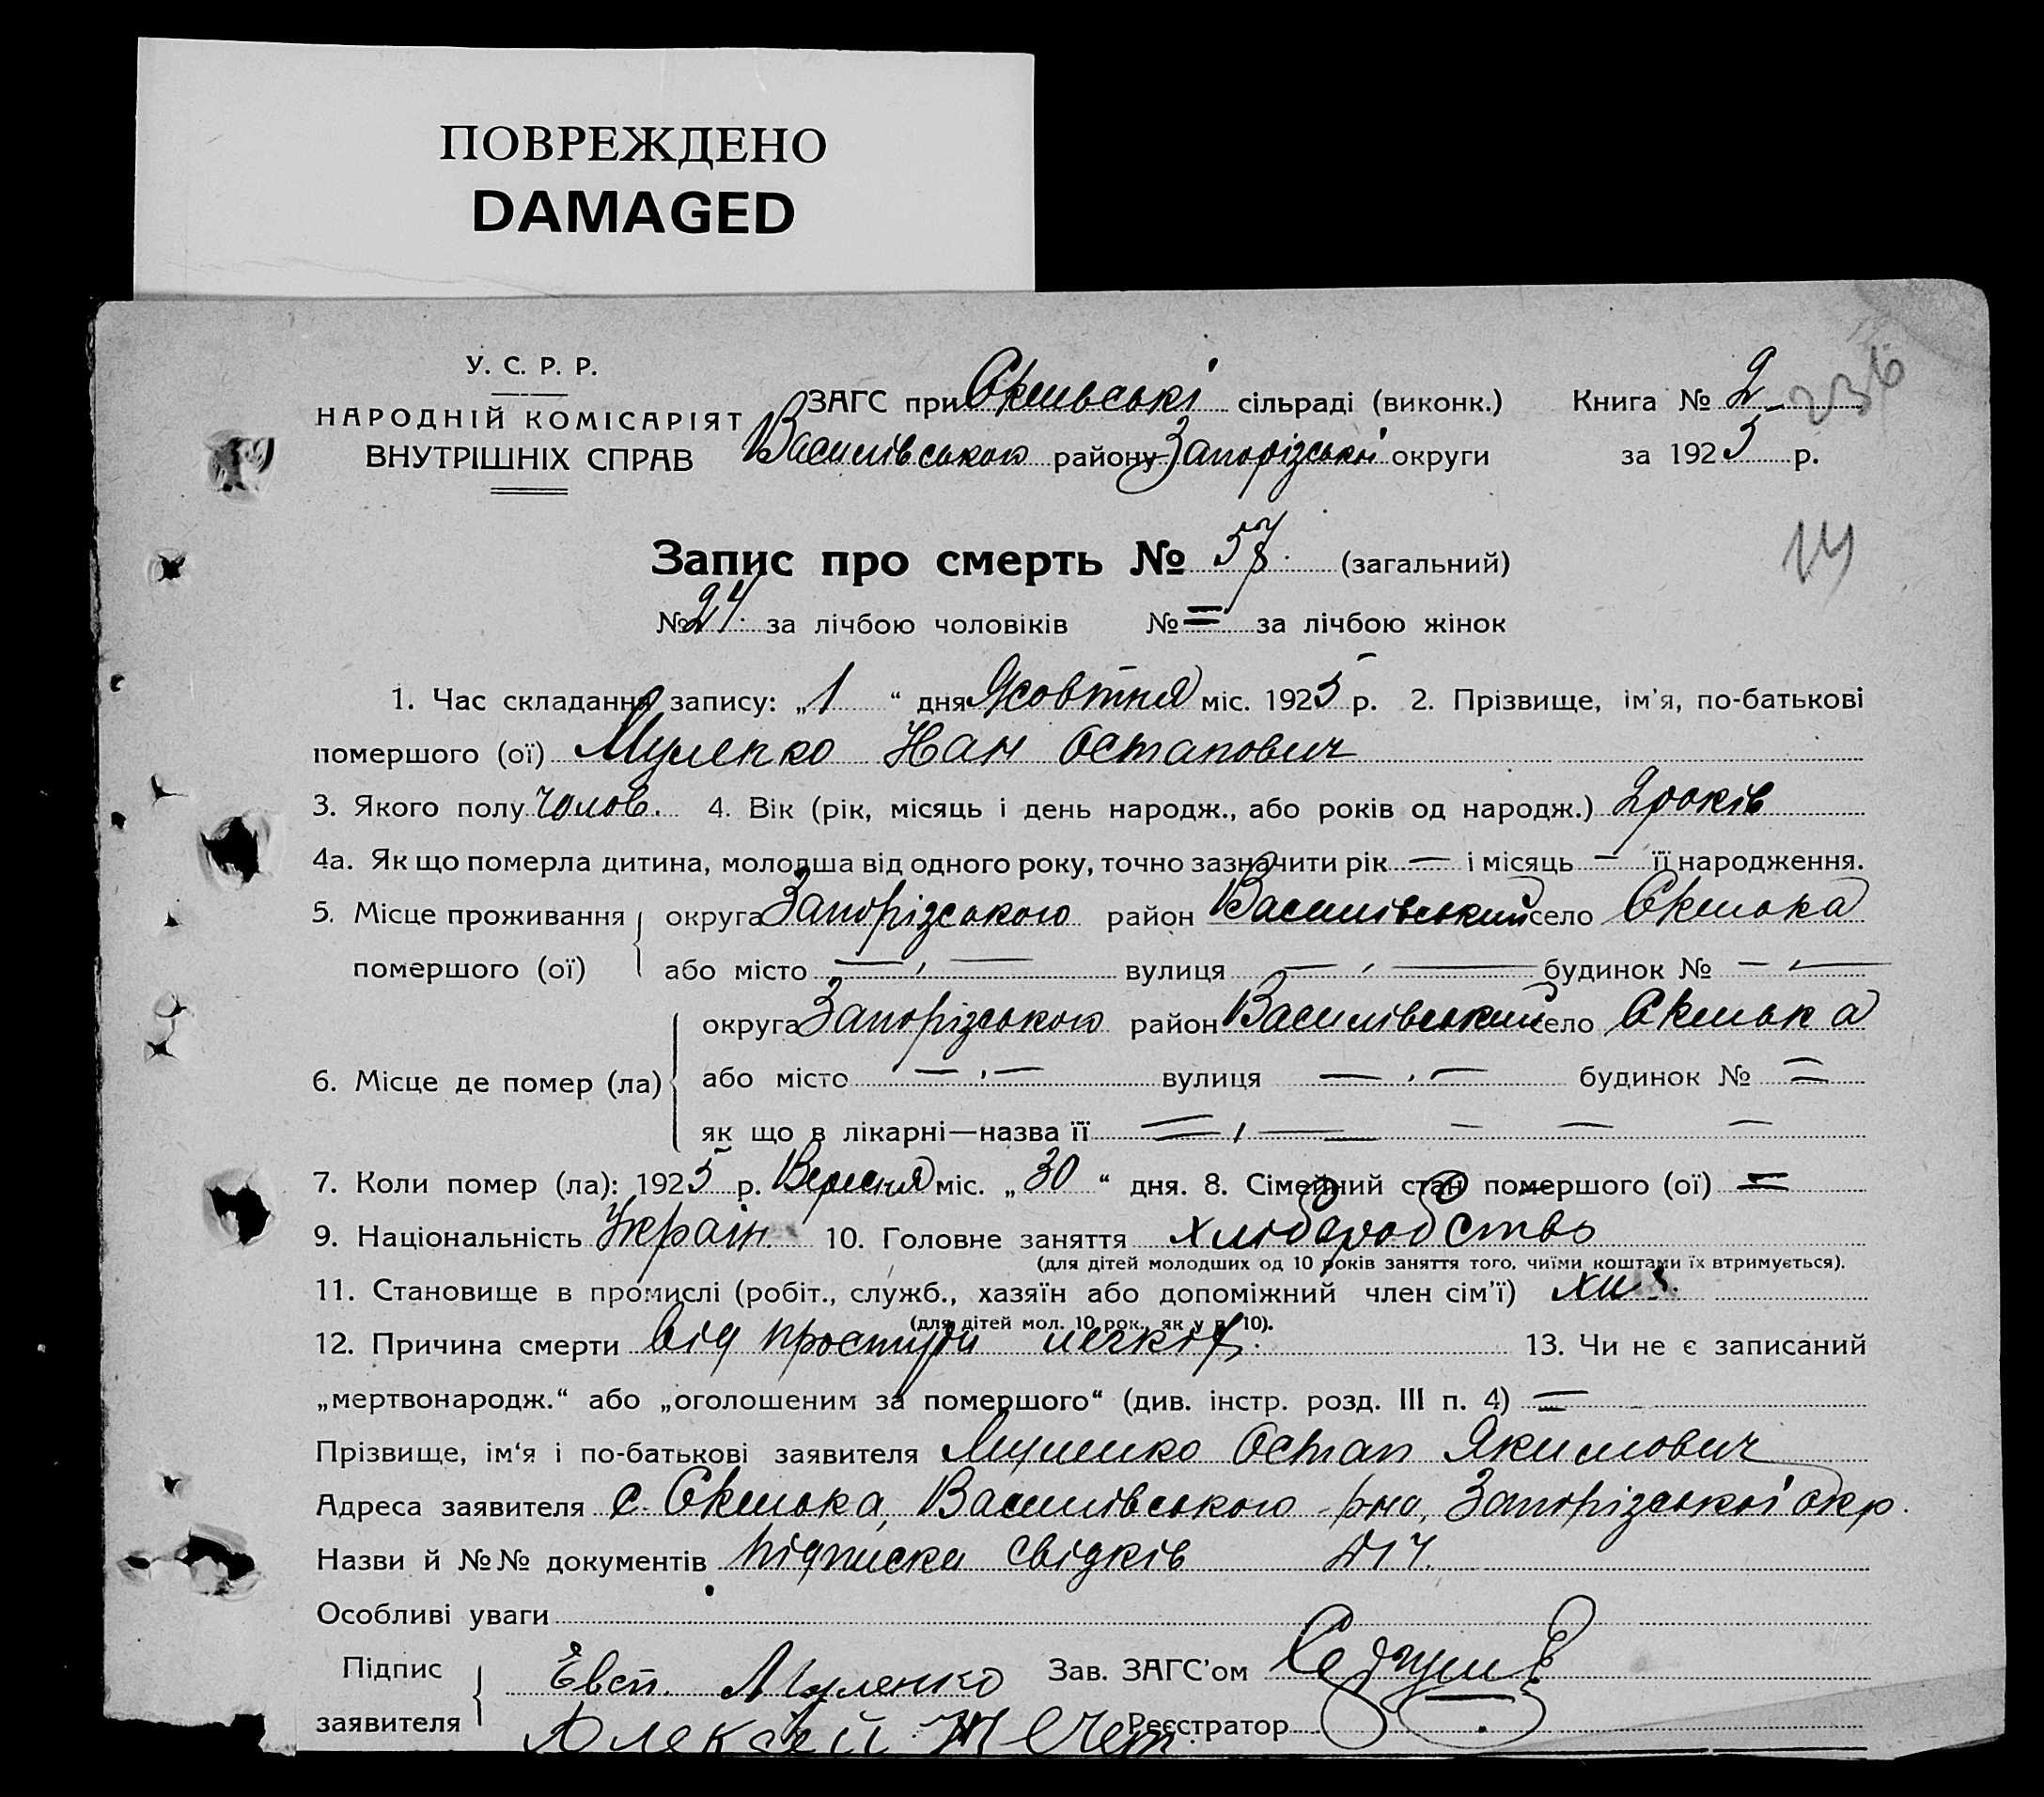 ПОВРЕЖДЕНО
DAMAGED
У. С. Р. Р.
НАРОДНІЙ КОМІСАРІЯТ
ВНУТРІШНІХ СПРАВ
ЗАГС при Скельські сільраді (виконк.) Книга № 2 236
Василівського району Запорізської округи за 1925 р.
14
Запис про смерть № 57. (загальний)
№ 24. за лічбою чоловіків № = за лічбою жінок
1. Час складання запису: „1“ дня Жовтня міс. 1925 р. 2. Прізвище, ім'я, по-батькові
помершого (ої) Муленко Остапович
3. Якого полу чолов. 4. Вік (рік, місяць і день народж., або років од народж.) 2 років
4а. Як що померла дитина, молодша від одного року, точно зазначити рік — і місяць — її народження.
5. Місце проживання округа Запорізського район Василівський село Скелька
помершого (ої) або місто — вулиця — будинок № —
округа Запорізського район Василівський село Скелька
6. Місце де помер (ла) або місто — вулиця — будинок № =
як що в лікарні—назва її —
7. Коли помер (ла): 1925 р. Вересня міс. „30“ дня. 8. Сімейний стан помершого (ої) =
9. Національність Україн. 10. Головне заняття хліборобство
(для дітей молодших од 10 років заняття того, чиїми коштами їх втримується).
11. Становище в промислі (робіт., служб., хазяїн або допоміжний член сім'ї)
(для дітей мол. 10 рок., як у п. 10).
12. Причина смерти від простуди легких. 13. Чи не є записаний
„мертвонародж.“ або „оголошеним за помершого“ (див. інстр. розд. III п. 4) =
Прізвище, ім'я і по-батькові заявителя Муленко Остап Якимович
Адреса заявителя с. Скелька, Василівського р-на, Запорізської окр.
Назви й №№ документів підписка свідків
Особливі уваги
Підпис Евст. Муленко Зав. ЗАГС'ом
заявителя Алексей Реєстратор